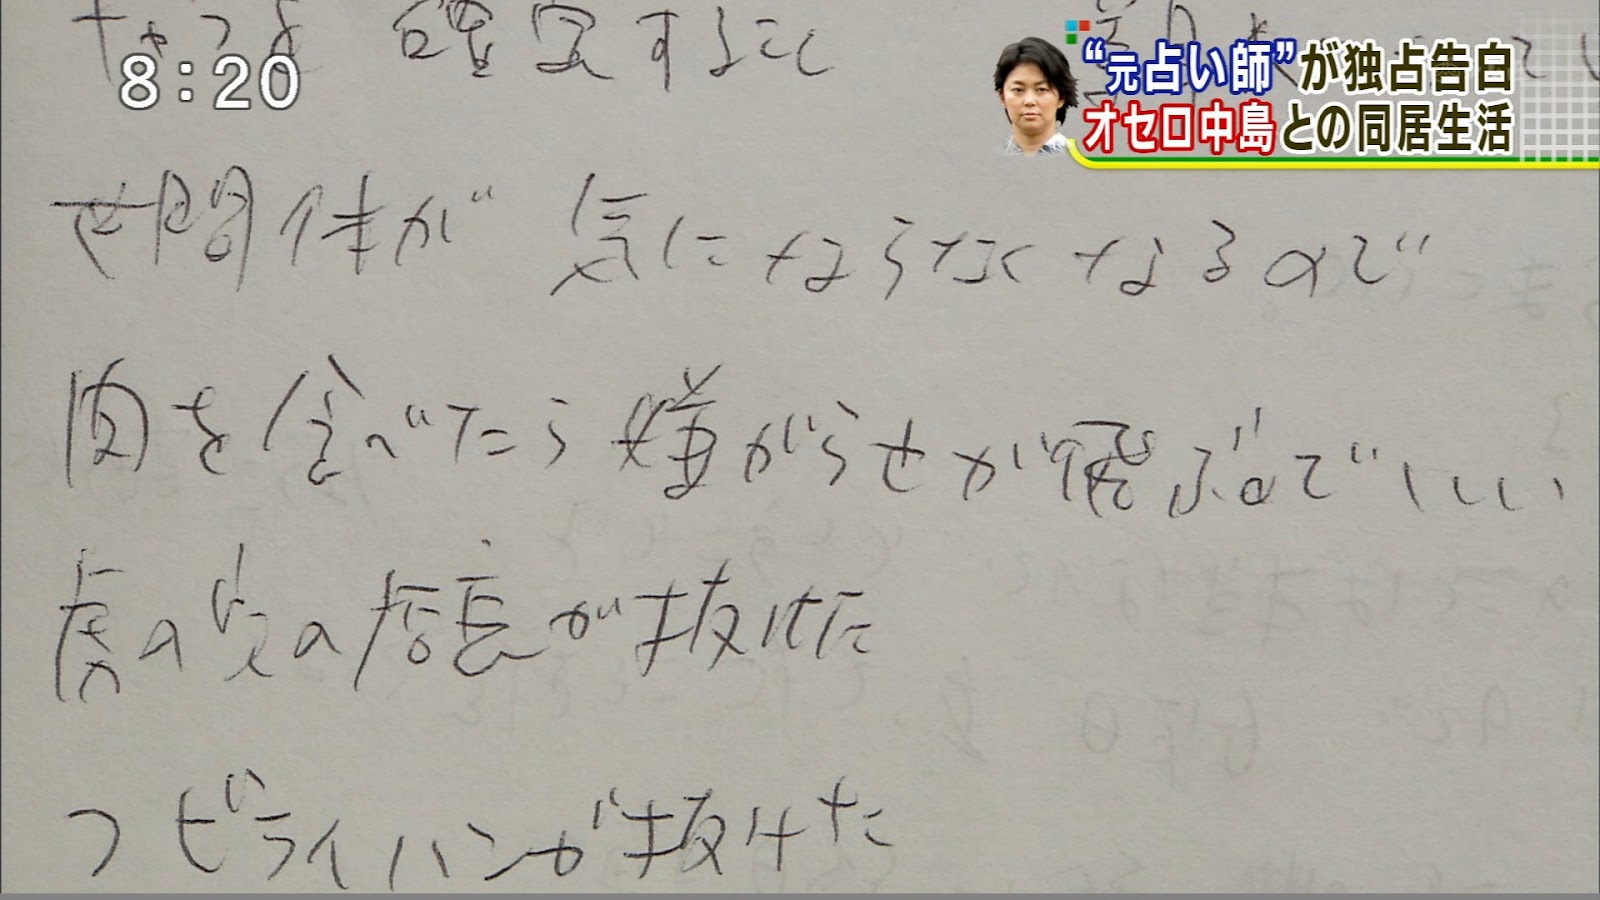 8:20
“元占い師”が独占告白
オセロ中島との同居生活
を確定すること
世間体が気にならなくなるので
肉を食べたら嫌がらせが飛ぶのでいい
虎の次の店長が抜けた
ビライハンが抜けた